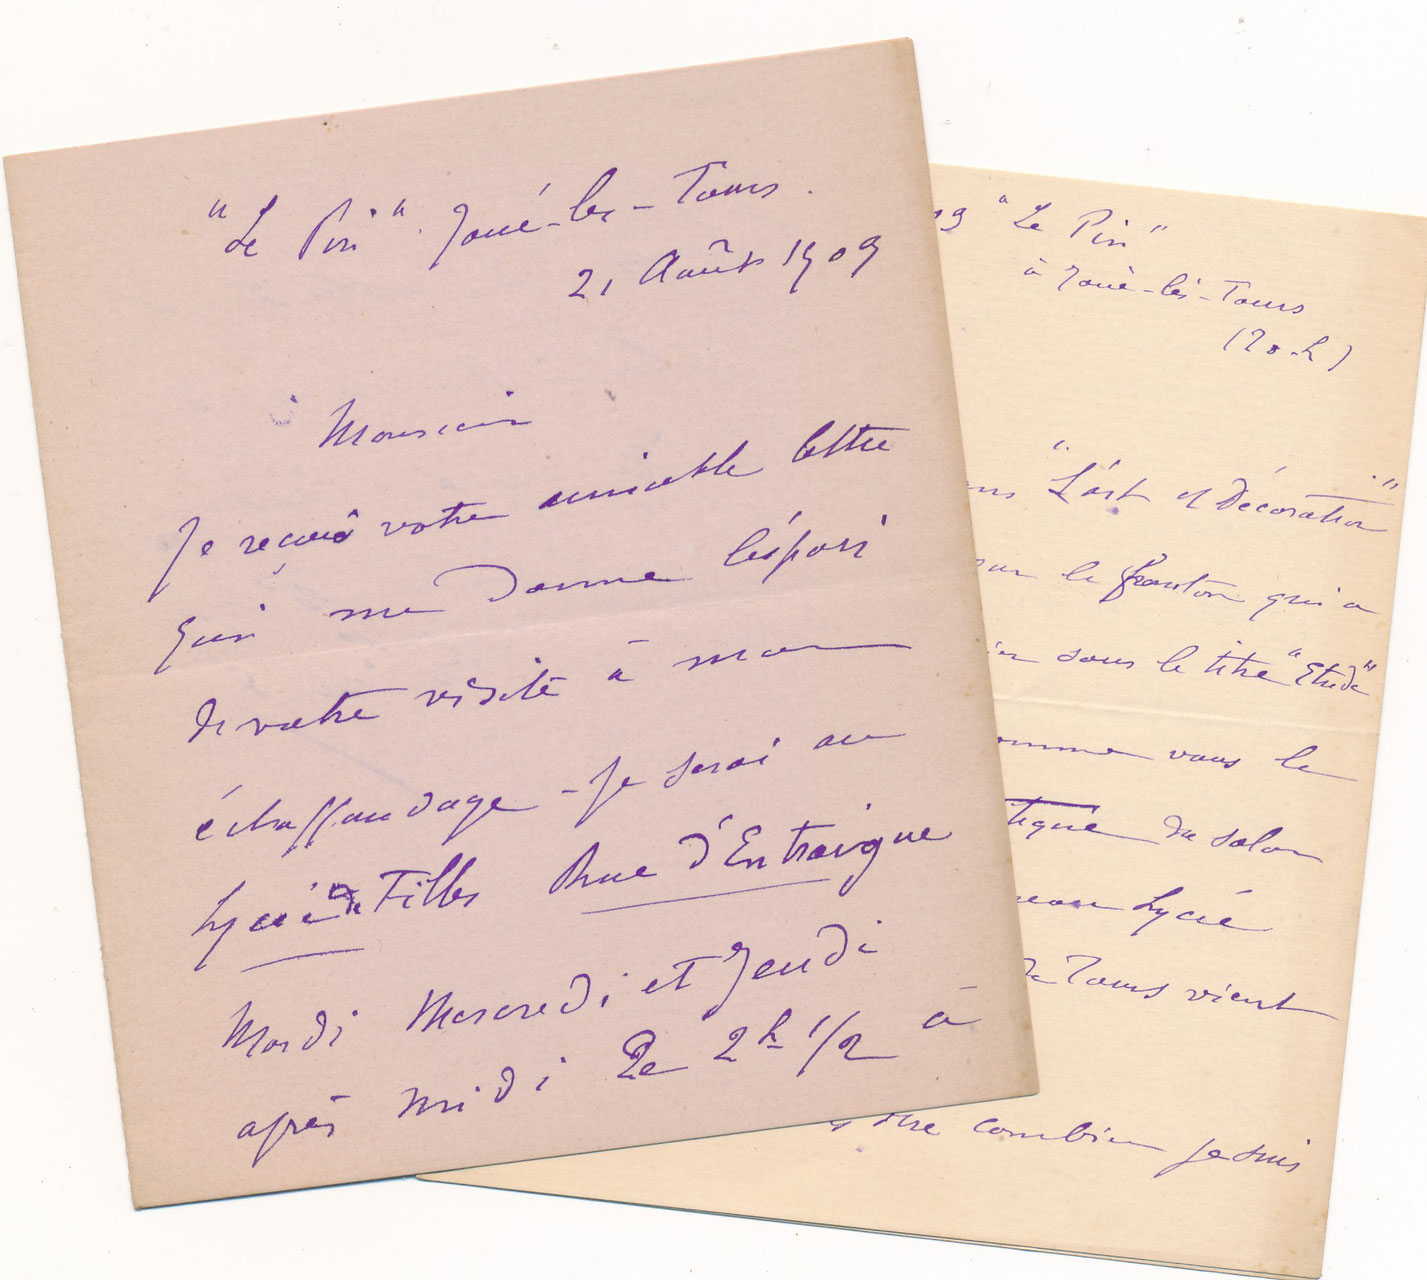 "Le Pin" Joué-les-Tours.
21 Août 1909
Monsieur
Je reçois votre aimable lettre
qui me donne l'éspoir
de votre visite à mon
échaffaudage - Je serai au
Lycée de Filles Rue d'Entraigue
Mardi Mercredi et Jeudi
après midi De 2h 1/2 à
"Le Pin"
à Joué-lès-Tours
"L'art et Décoration"
sur le fronton qui a
sous le titre "Etude"
comme vous le
du salon
Lycée
de Tours vient
combien je suis